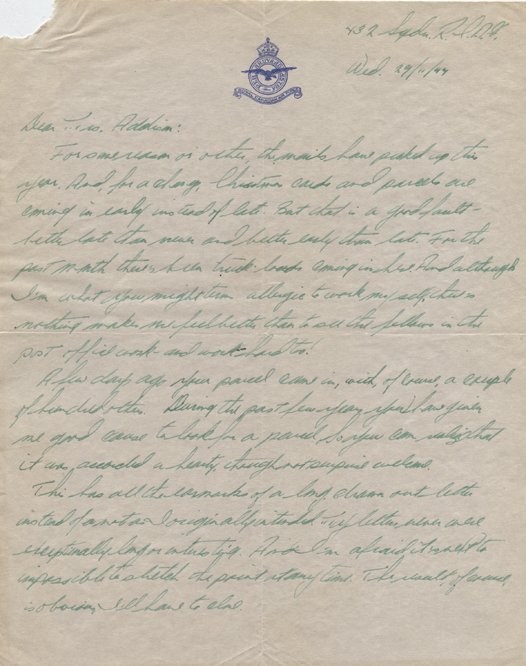 432 Sqdn. R.C.A.F.
Wed. 29/11/44
Dear Mrs. Addison:
For some reason or other, the mails have picked up this
year. And, for a change, Christmas cards and parcels are
coming in early instead of late. But that is a good fault –
better late than never and better early than late. For the
past month there's been truck loads coming in here. And although
I'm what you might term allergic to work myself, there is
nothing makes me feel better than to see the fellows in the
post office work – and work hard too!
A few days ago your parcel came in, with, of course, a couple
of hundred others. During the past few years you have given
me good cause to look for a parcel so you can realize that
it was accorded a hearty, though not surprise welcome.
This has all the earmarks of a long, drawn out letter
instead of a note as I originally intended. My letters never were
exceptionally long or interesting. And so I'm afraid it's next to
impossible to stretch the point at any time. The result of course,
is obvious, I'll have to close.